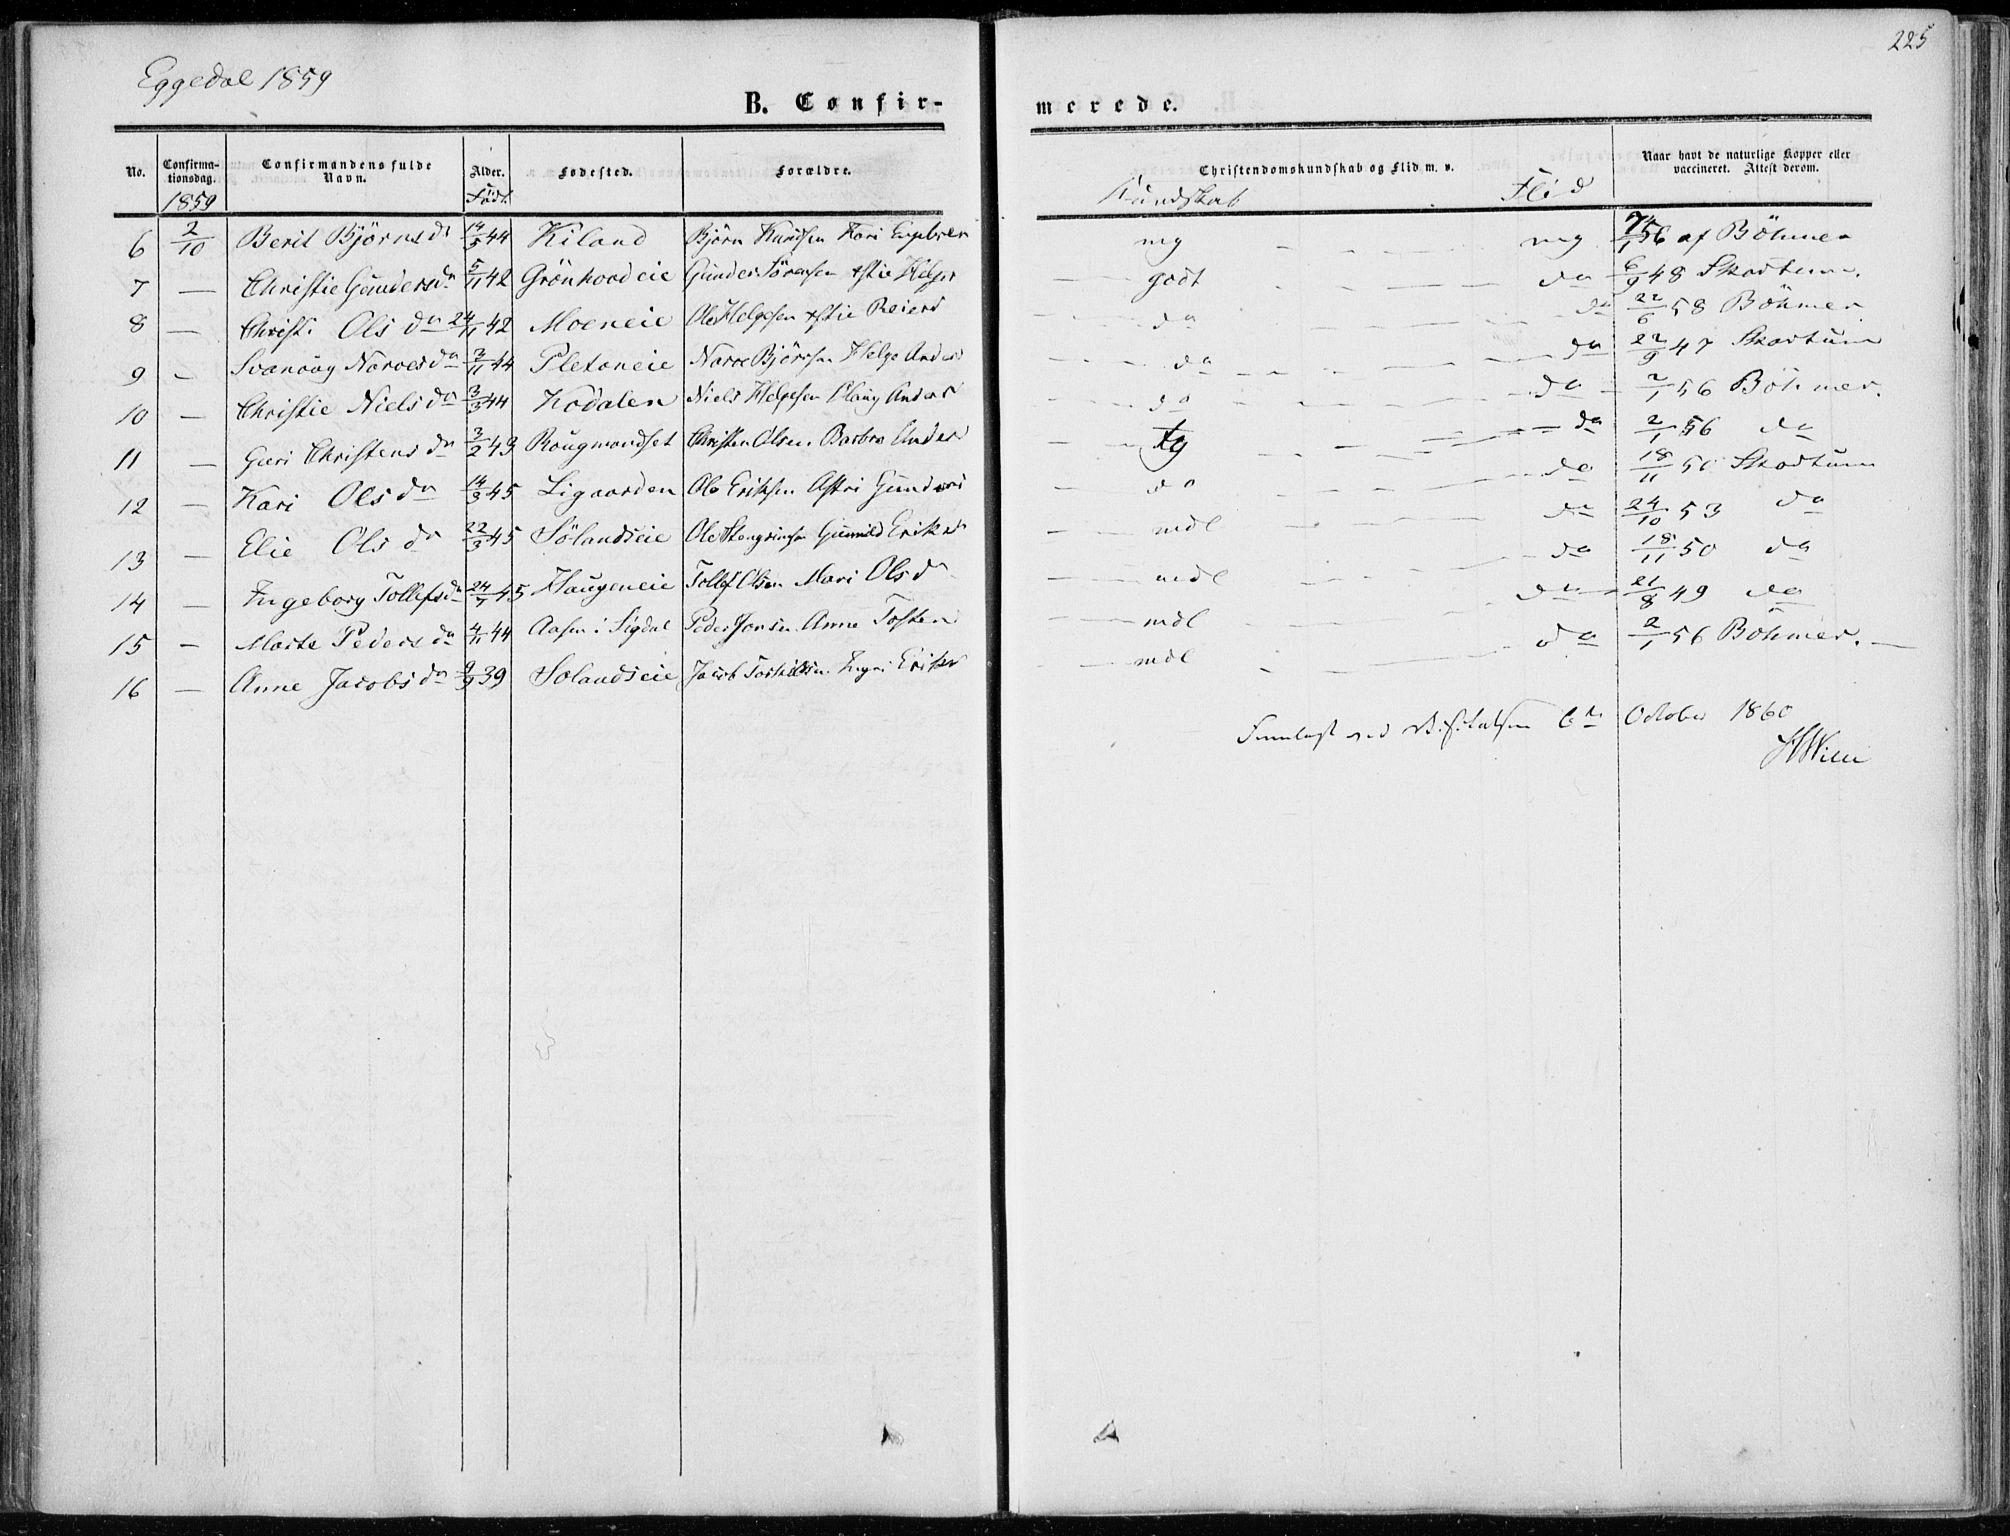 225
Eggedal 1859
B. Confir-
merede.
No. Confirma-tionsdag. Confirmandens fulde Navn. Alder. Fødested. Forældre. Christendomskundskab og Flid m. v. Naar havt de naturlige Kopper eller vaccineret. Attest derom.
1859 Födt. Kundskab Flid
6 2/10 Berit Björns dr 14/5 44 Kiland Björn Knudsen Kari Engebrer mg mg 56 af Böhmer
7 — Christie Gunders dr 5/11 42 Grönhovdeie Gunder Sörensen Helger godt do 6/9 48 Skartum.
8 — Christi Ols dr 24/11 42 Moeneie Ole Helgesen Reiers do do 22/6 58 Böhmer
9 — Svanaug Narves dr 3/11 44 Pletaneie Narve Björnsen Helge Anders do do 22/9 47 Skartum
10 — Christie Niels dr 3/3 44 Kodalen Niels Helgesen Anders do do 2/1 56 Böhmer.
11 — Guri Christens dr 3/2 43 Rougmandset Christen Olsen Barbro Anders tg do 2/1 56 do
12 — Kari Ols dr 14/3 45 Ligaarden Ole Eriksen Astri Gunders do do 18/11 50 Skartum
13 — Elie Ols dr 22/3 45 Sölandseie Ole Gunnild Eriks mdl do 24/10 53 do
14 — Ingeborg Tollefs dr 24/7 45 Haugeneie Tollef Olsen Mari Ols dr mdl do 18/11 50 do
15 — Marte Peders dr 4/11 44 Aasen i Sigdal Peder Jonsen Anne Tosten mdl do 21/8 49 do
16 — Anne Jacobs dr 9/9 39 Solandseie Jacob Eriks mdl do 2/1 56 Böhmer. —
Fremlagt ved Visitatsen 6te October 1860